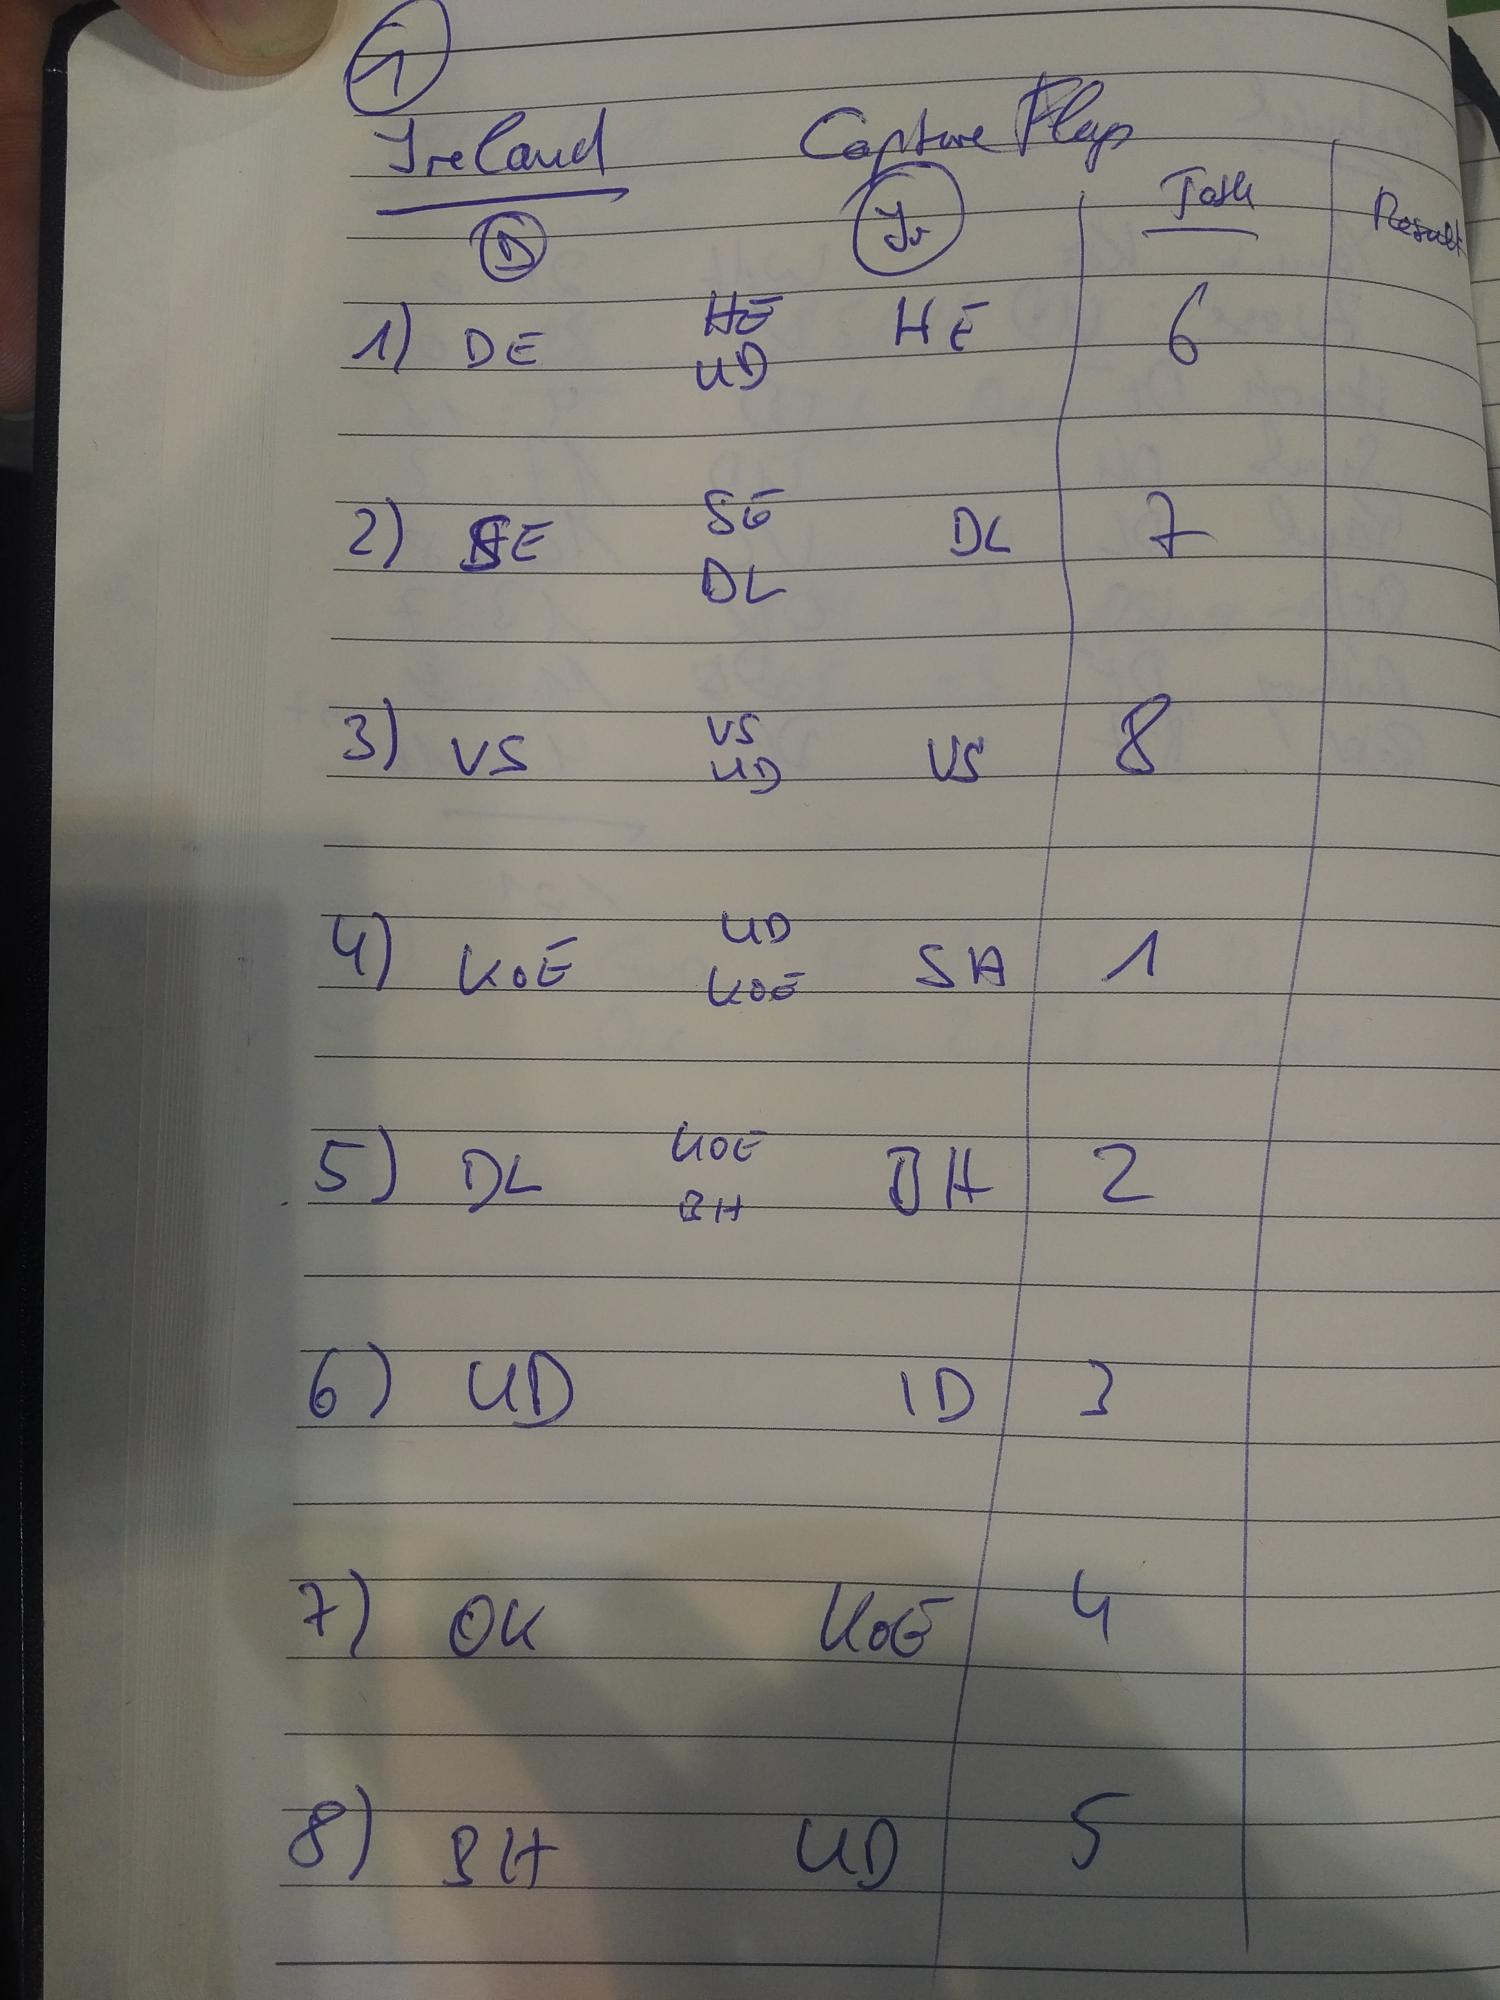 1
Ireland Capture Flags
D Ir Task Result
1) DE HE UD HE 6
2) SE SE DL DL 7
3) VS VS UD VS 8
4) KOE UD KOE SA 1
5) DL KOE BH BH 2
6) UD ID 3
7) OK KOE 4
8) BH UD 5